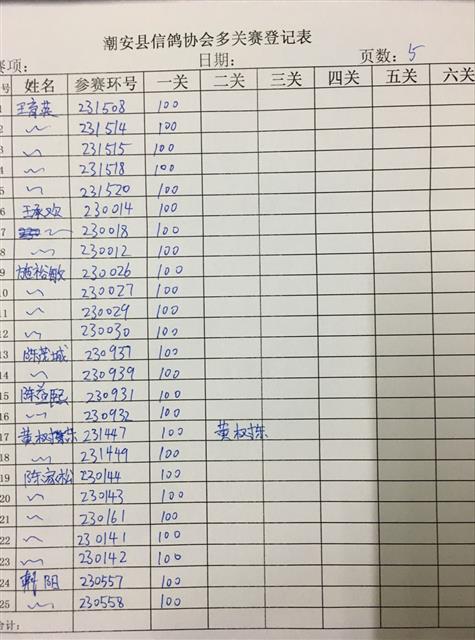 潮安县信鸽协会多关赛登记表
赛项: 日期: 页数: 5
号 姓名 参赛环号 一关 二关 三关 四关 五关 六关
1 王育英 231508 100
2 〃 231514 100
3 〃 231515 100
4 〃 231518 100
5 〃 231520 100
6 王承欢 230014 100
7 〃 230018 100
8 〃 230012 100
9 施裕敏 230026 100
10 〃 230027 100
11 〃 230029 100
12 〃 230030 100
13 陈茂城 230937 100
14 〃 230939 100
15 陈 230931 100
16 〃 230932 100
17 黄树栋 231447 100 黄树栋
18 〃 231449 100
19 陈家松 230144 100
20 〃 230143 100
21 〃 230161 100
22 〃 230141 100
23 〃 230142 100
24 阳 230557 100
25 〃 230558 100
合计: